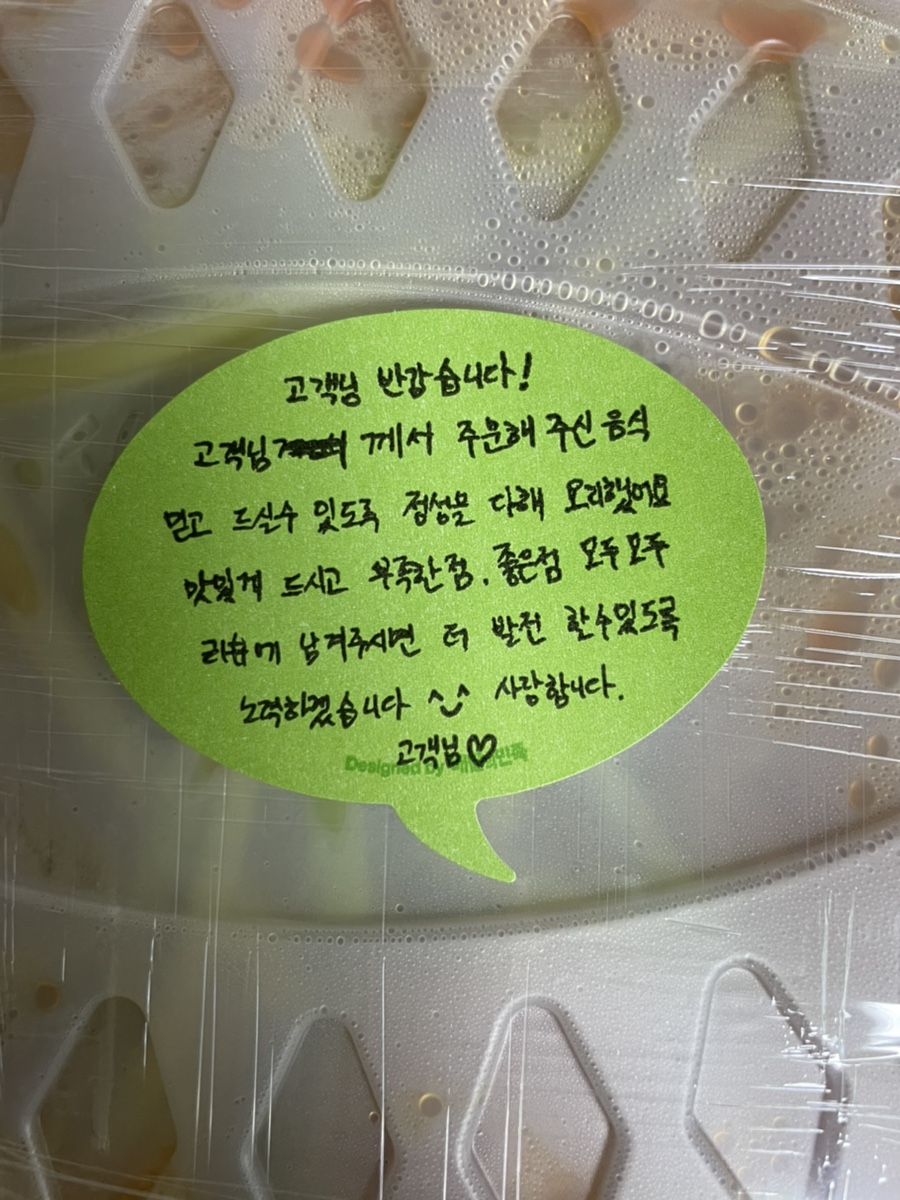 고객님 반갑습니다!
고객님께서 주문해 주신 음식
믿고 드실수 있도록 정성을 다해 요리했어요
맛있게 드시고 부족한점, 좋은점 모두모두
리뷰에 남겨주시면 더 발전 할수있도록
노력하겠습니다 ^‿^ 사랑합니다.
고객님♡
Designed by 배달의민족